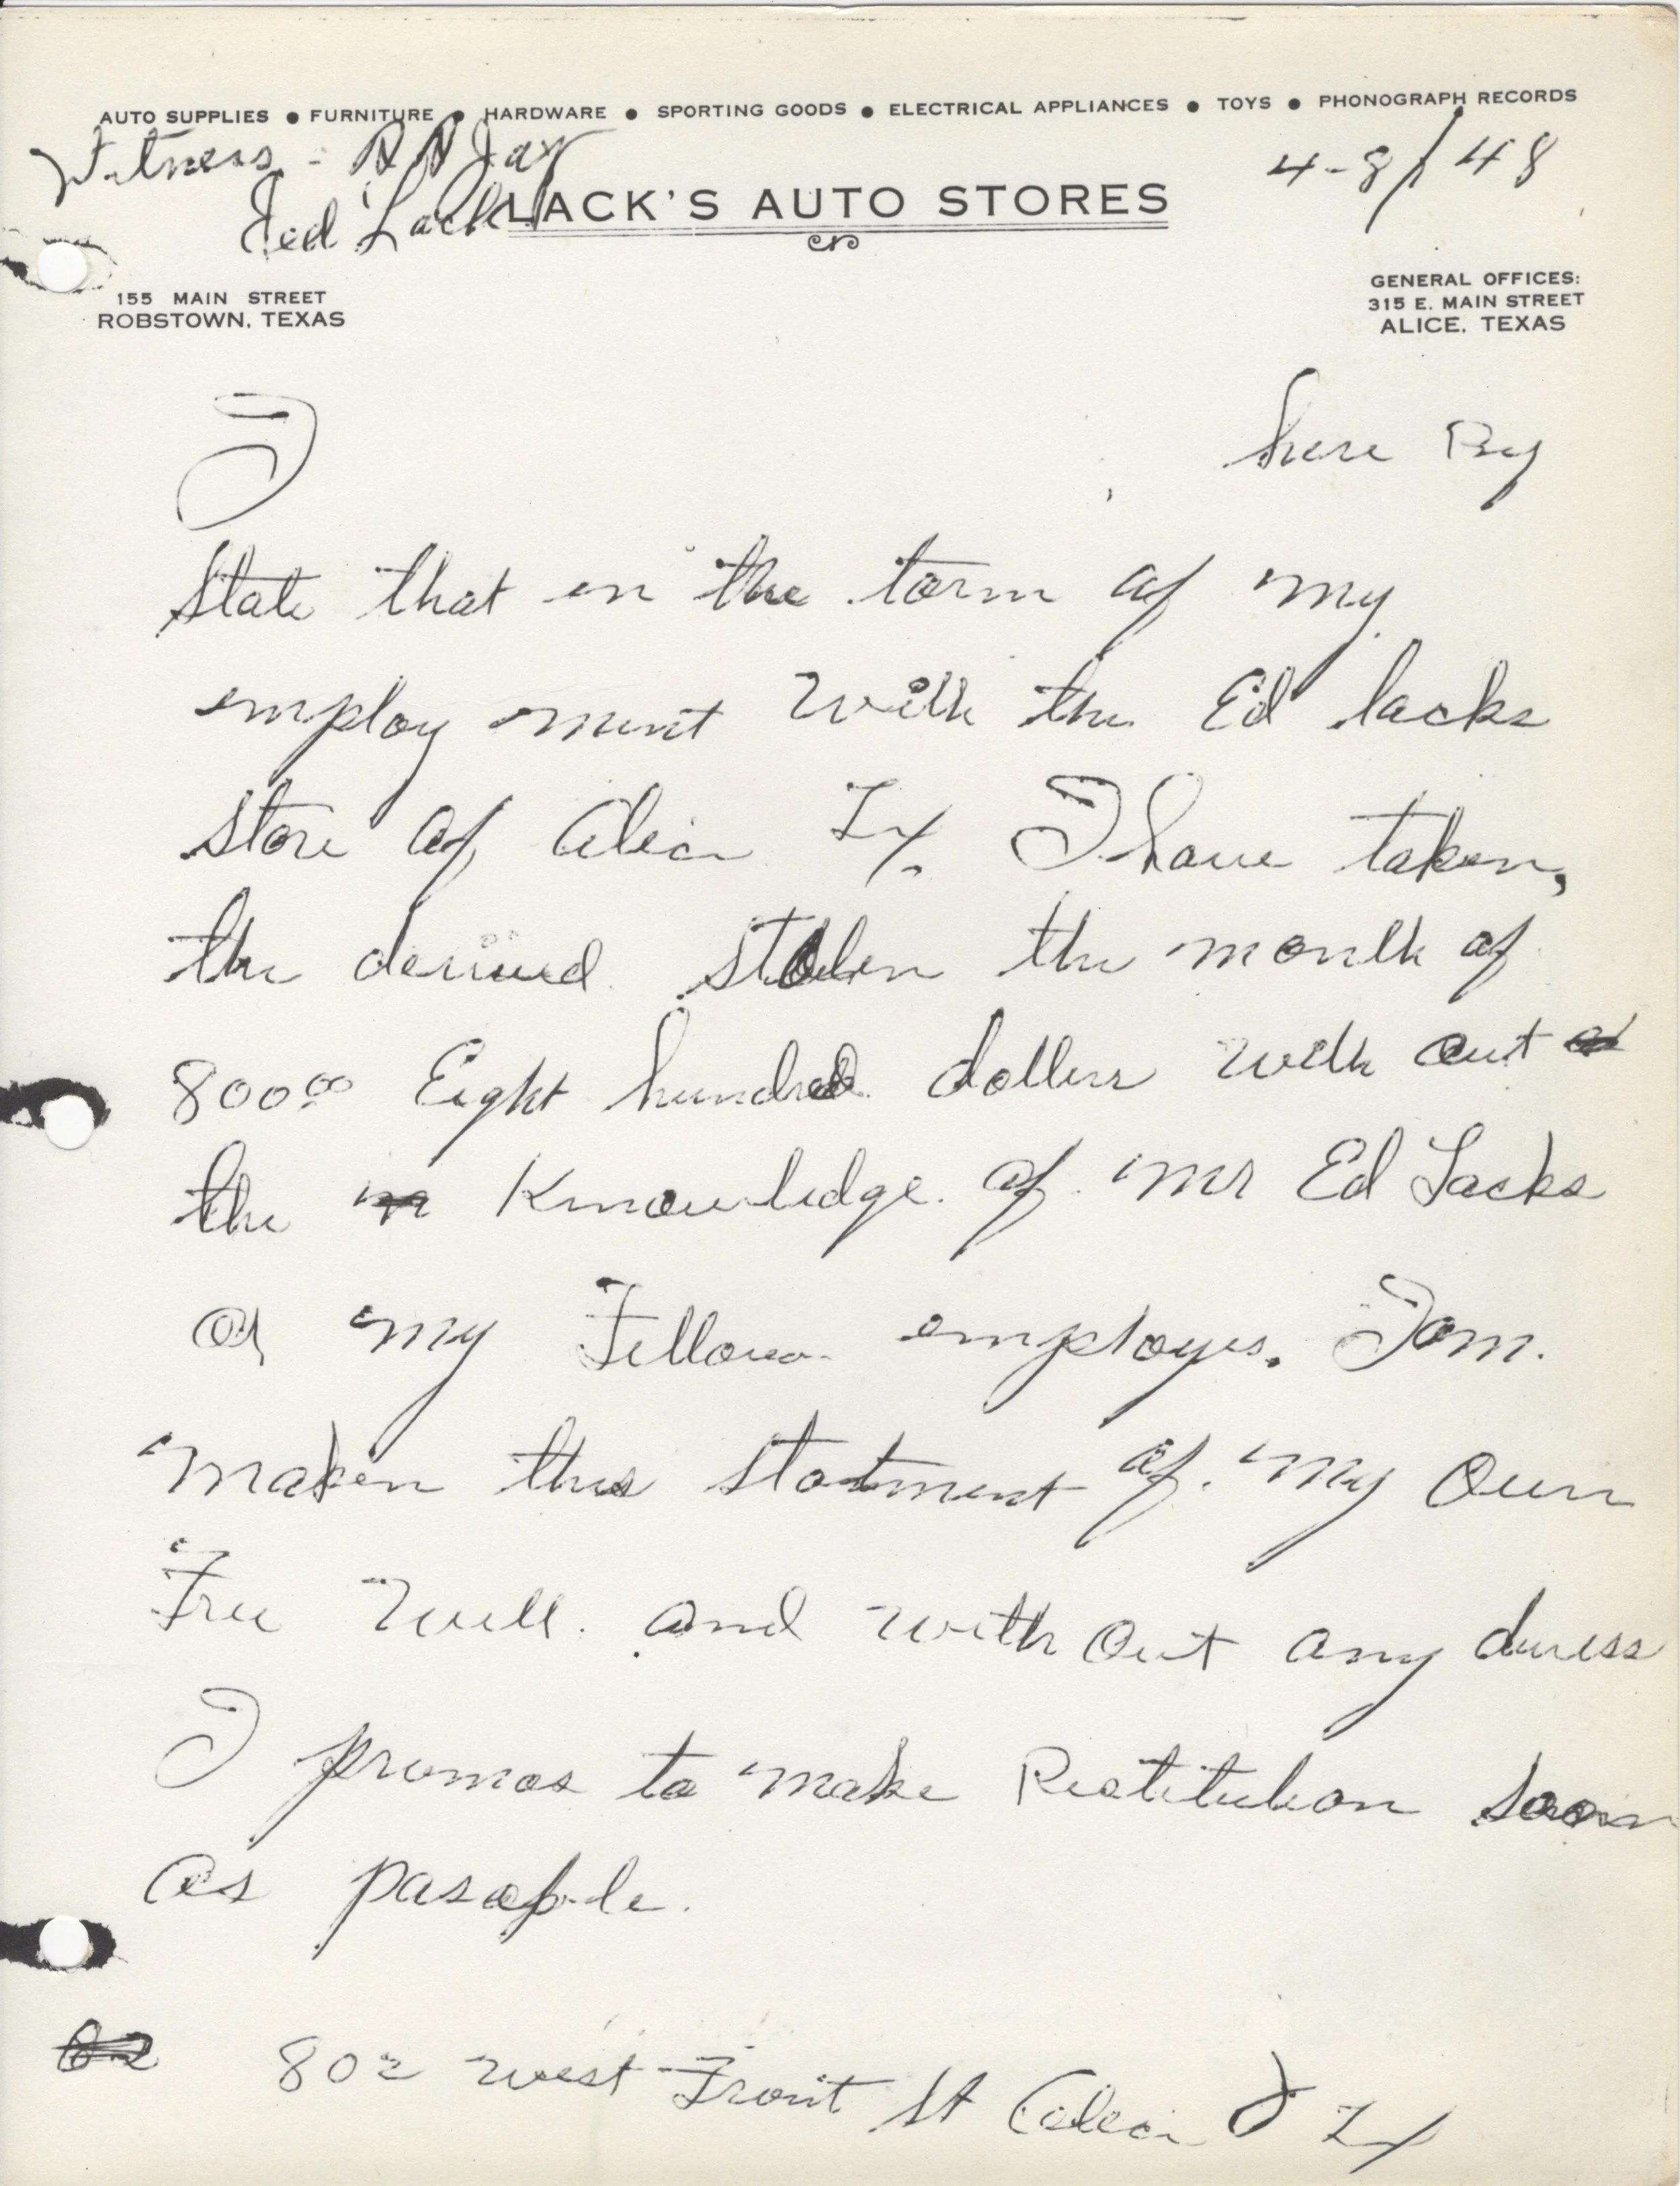 AUTO SUPPLIES ● FURNITURE ● HARDWARE ● SPORTING GOODS ● ELECTRICAL APPLIANCES ● TOYS ● PHONOGRAPH RECORDS
Witness - Jay
4-8/48
Lack
LACK'S AUTO STORES
155 MAIN STREET
ROBSTOWN, TEXAS
GENERAL OFFICES:
315 E. MAIN STREET
ALICE, TEXAS
I here By
State that in the torm of my
employ ment with the Ed lacks
store of Alice Tx. I have taken,
the stolen the month of
800.00 Eight hundred dollers with out
the Knowledge of Mr Ed Lacks
or my Fellow employes. I am.
maken this statment of my Own
Free Will. and with Out any duress
I promas to make Restitution soon
as pasable.
802 west Front St Alice Tx